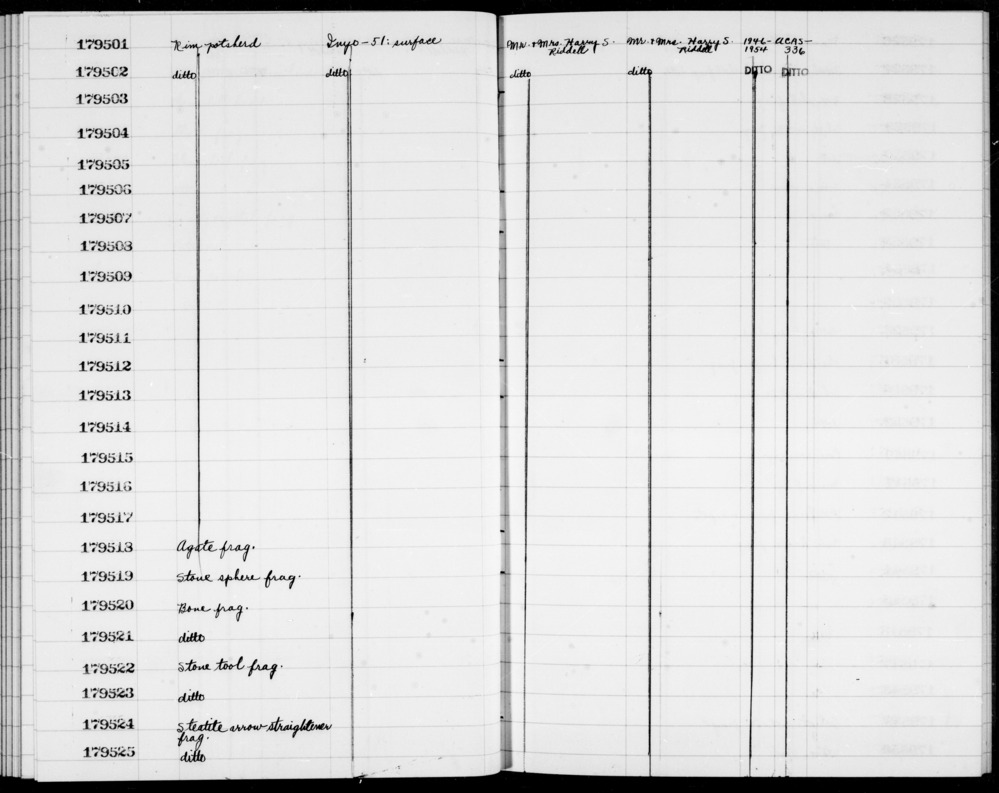 179501 Rim potsherd Inyo-51: surface Mr. + Mrs. Harry S. Riddell Mr. + Mrs. Harry S. Riddell 1946-1954 ACAS-336
179502 ditto ditto ditto ditto DITTO DITTO
179503
179504
179505
179506
179507
179508
179509
179510
179511
179512
179513
179514
179515
179516
179517
179518 Agate frag.
179519 Stone sphere frag.
179520 Bone frag.
179521 ditto
179522 Stone tool frag.
179523 ditto
179524 Steatite arrow straightener
frag.
179525 ditto